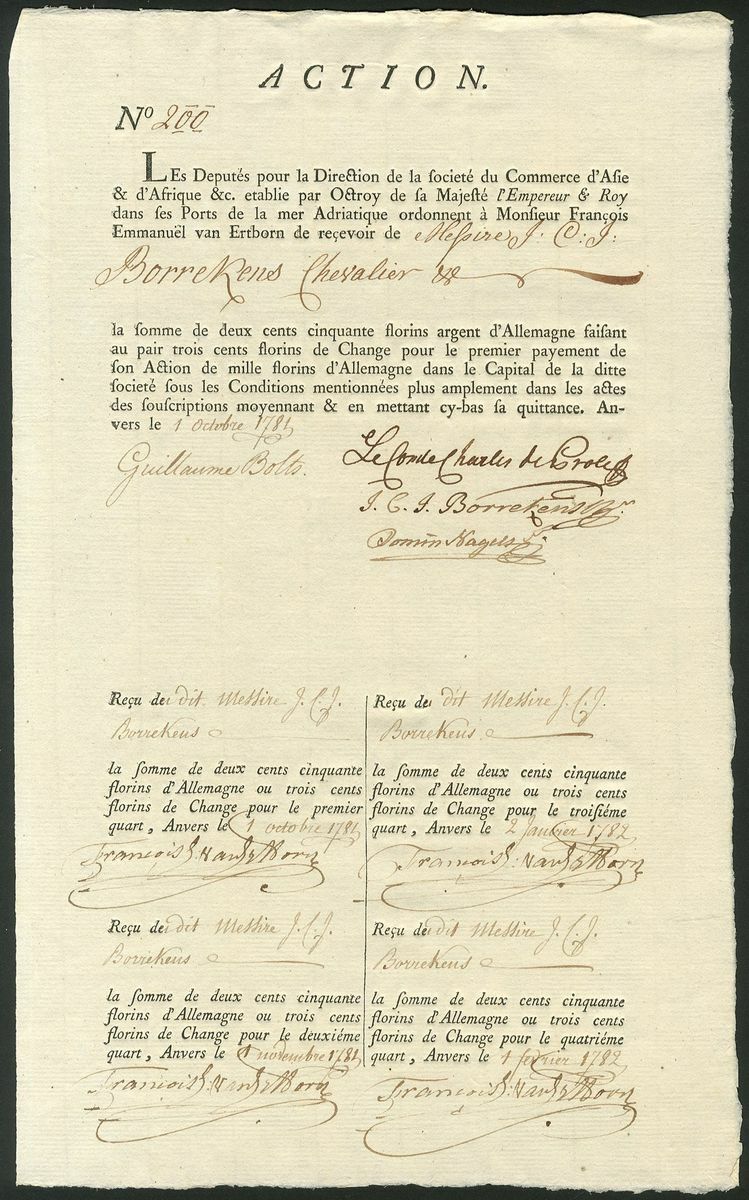 ACTION.
Nº 200
LEs Deputés pour la Direction de la societé du Commerce d'Aſie
& d'Afrique &c. etablie par Octroy de ſa Majeſté l'Empereur & Roy
dans ſes Ports de la mer Adriatique ordonnent à Monſieur François
Emmanuël van Ertborn de reçevoir de Meſsire J. C: J:
Borrekens Chevalier &c
la ſomme de deux cents cinquante florins argent d'Allemagne faiſant
au pair trois cents florins de Change pour le premier payement de
ſon Action de mille florins d'Allemagne dans le Capital de la ditte
societé ſous les Conditions mentionnées plus amplement dans les actes
des ſouſcriptions moyennant & en mettant cy-bas ſa quittance. An-
vers le 1 octobre 1781
Guillaume Bolts.
Le Comte Charles de Proli
J. C. J. Borrekens
Domin Nagels
Reçu de dit Messire J. C. J.
Borrekens
la ſomme de deux cents cinquante
florins d'Allemagne ou trois cents
florins de Change pour le premier
quart, Anvers le 1 octobre 1781
François E. Van Ertborn
Reçu de dit Messire J. C. J.
Borrekens
la ſomme de deux cents cinquante
florins d'Allemagne ou trois cents
florins de Change pour le troiſiéme
quart, Anvers le 2 Janvier 1782
François E. Van Ertborn
Reçu de dit Messire J. C. J.
Borrekens
la ſomme de deux cents cinquante
florins d'Allemagne ou trois cents
florins de Change pour le deuxiéme
quart, Anvers le 1 novembre 1781
François E. Van Ertborn
Reçu de dit Messire J. C. J.
Borrekens
la ſomme de deux cents cinquante
florins d'Allemagne ou trois cents
florins de Change pour le quatriéme
quart, Anvers le 1 fevrier 1782
François E. Van Ertborn